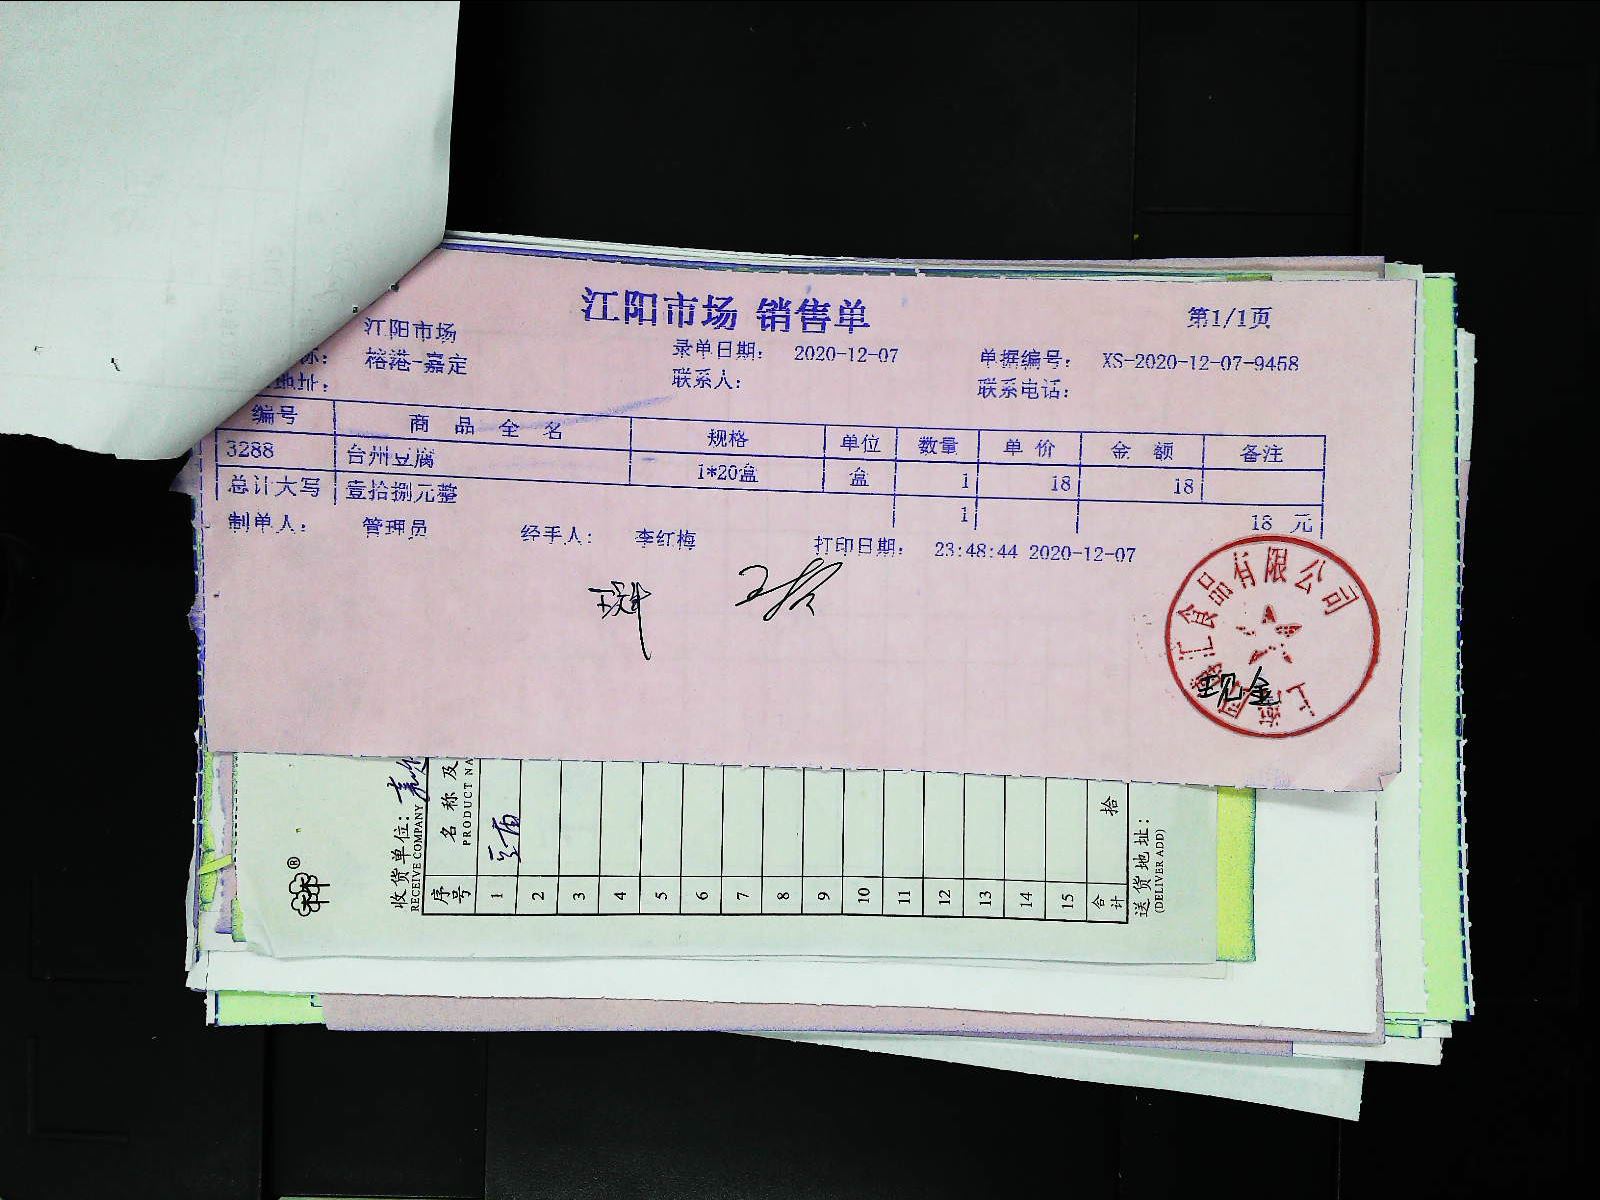 江阳市场 销售单
第1/1页
江阳市场
录单日期： 2020-12-07
单据编号： XS-2020-12-07-9458
标： 榕港-嘉定
联系人：
联系电话：
地址：
编号 商品全名 规格 单位 数量 单价 金额 备注
3288 台州豆腐 1*20盒 盒 1 18 18
总计大写 壹拾捌元整 1 18 元
制单人： 管理员 经手人： 李红梅 打印日期： 23:48:44 2020-12-07
食品有限公司
现金
收货单位：
RECEIVE COMPANY
序号 名称及
PRODUCT NA
1
2
3
4
5
6
7
8
9
10
11
12
13
14
15
合计 拾
送货地址：
(DELIVER ADD)